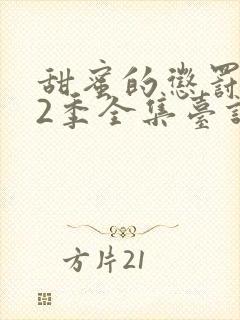 甜蜜的懲罰
2季全集臺
方片21